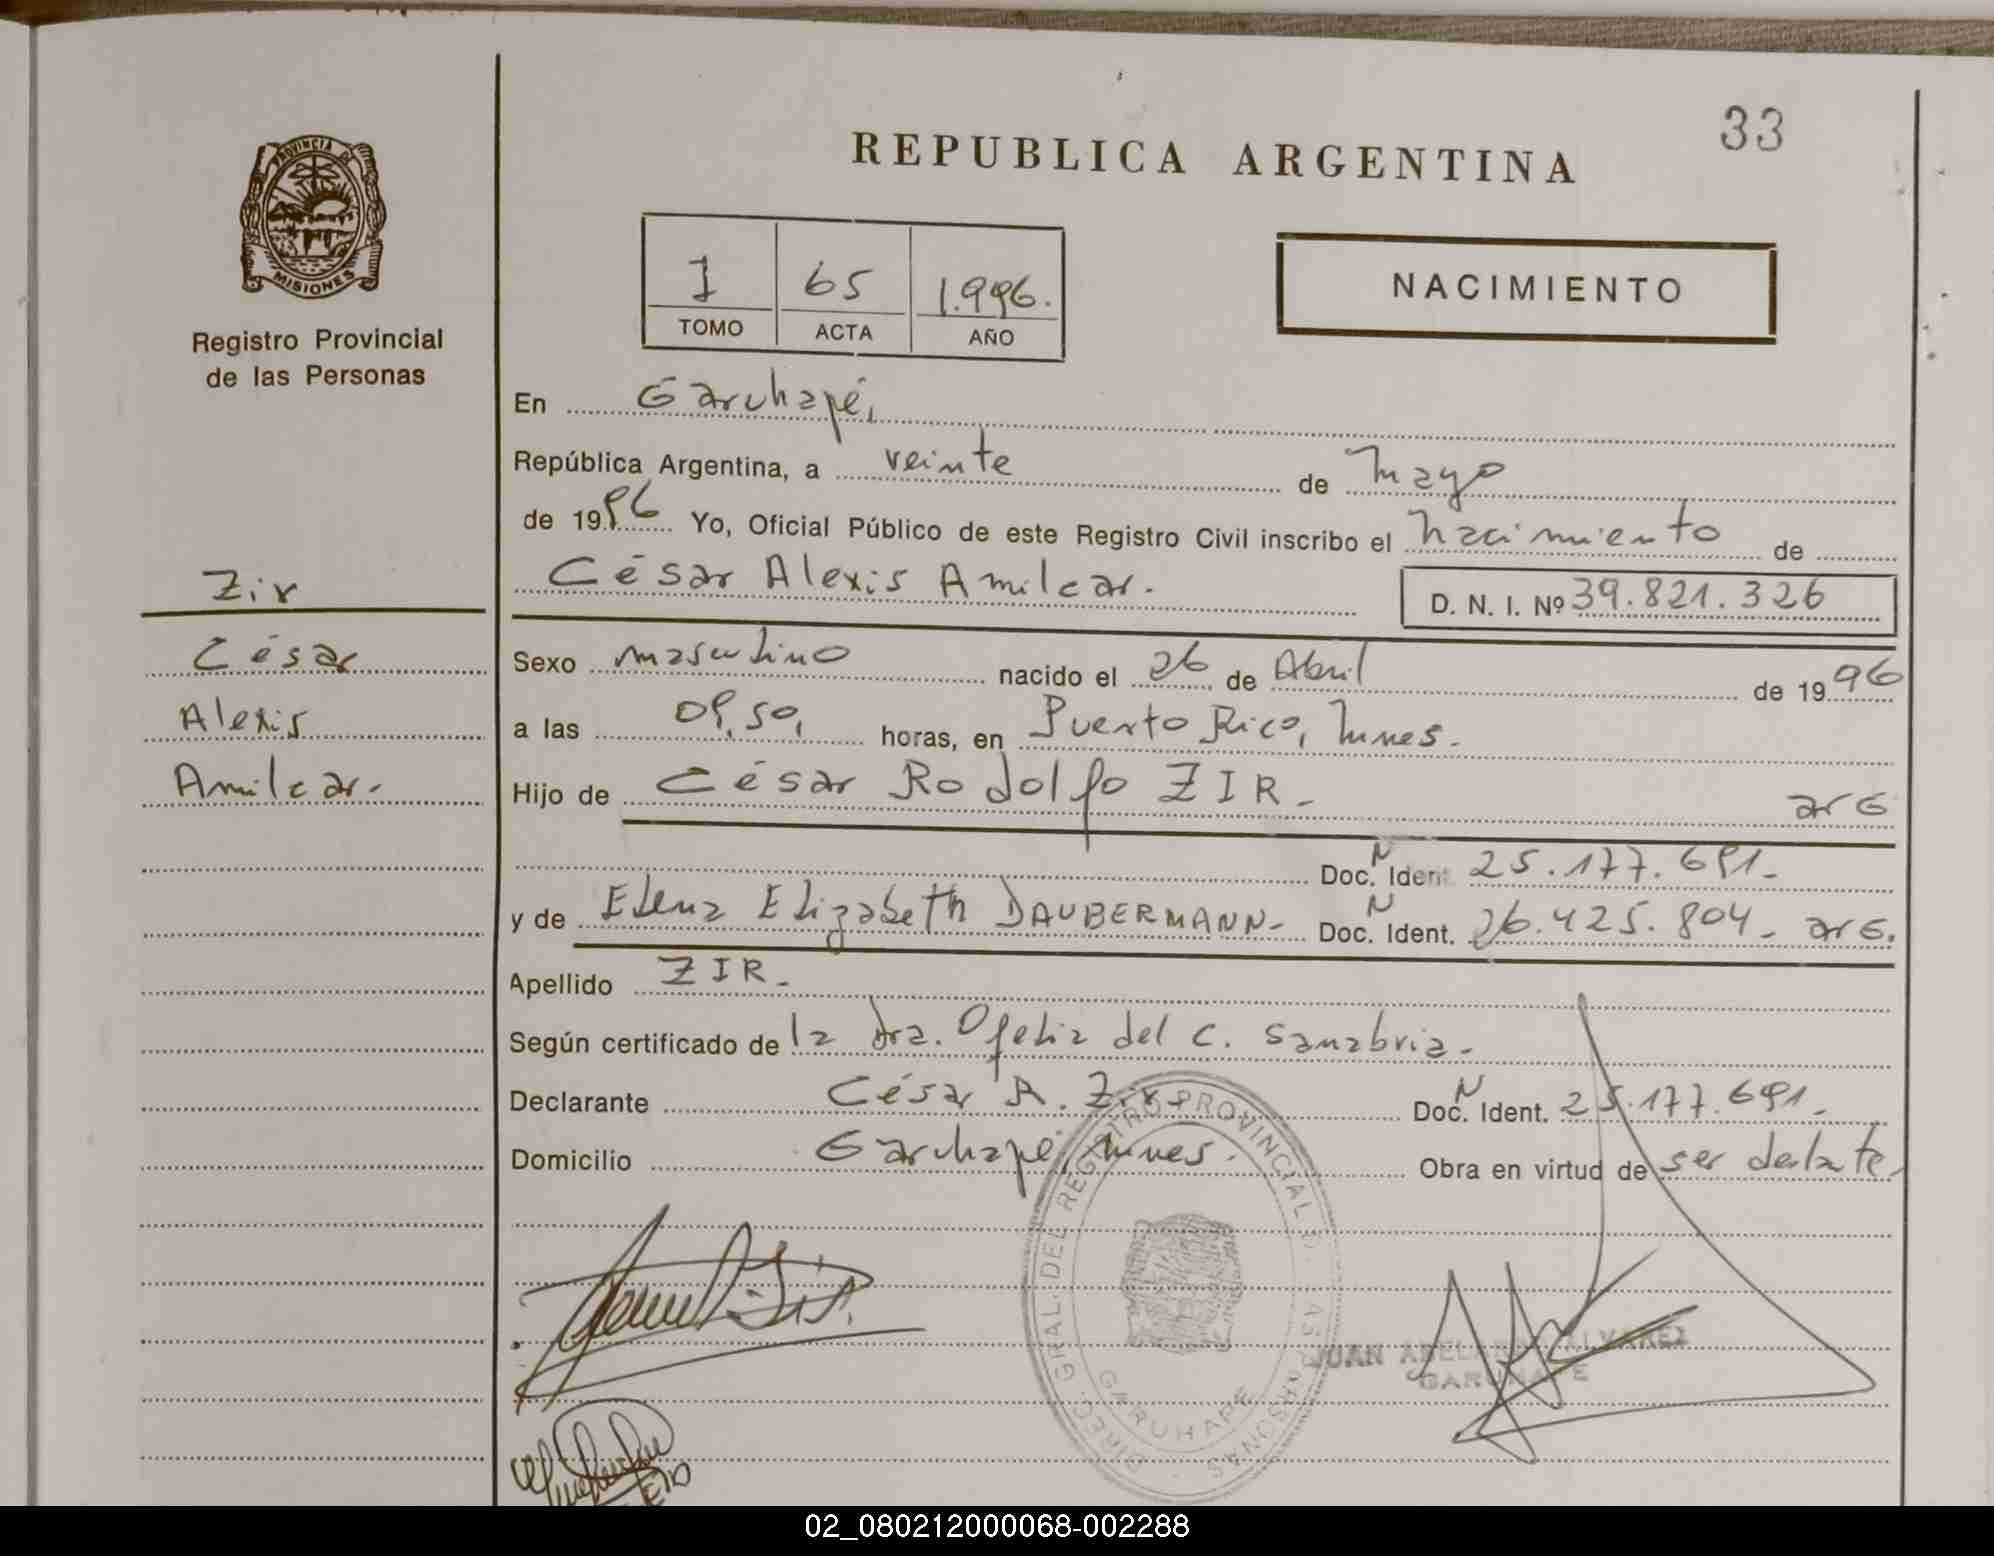 33
REPUBLICA ARGENTINA
PROVINCIA DE
MISIONES
Registro Provincial
de las Personas
I 65 1.996.
TOMO ACTA AÑO
NACIMIENTO
En Garuhapé,
República Argentina, a veinte de Mayo
de 1996 Yo, Oficial Público de este Registro Civil inscribo el nacimiento de
César Alexis Amilcar. D. N. I. Nº 39.821.326
Zir
César
Alexis
Amilcar.
Sexo masculino nacido el 26 de Abril de 1996
a las 09,50, horas, en Puerto Rico, Mnes.
Hijo de César Rodolfo ZIR. arg
Doc. N Ident. 25.177.691.
y de Elena Elizabeth DAUBERMANN. Doc. N Ident. 26.425.804. arg.
Apellido ZIR.
Según certificado de la dra. Ofelia del C. Sanabria.
Declarante César R. Zir. Doc. N Ident. 25.177.691.
Domicilio Garuhapé, Mnes. Obra en virtud de ser declante
DIREC. GRAL. DEL REGISTRO PROVINCIAL D. LAS PERSONAS
GARUHAPE
JUAN ABELARDO ALVAREZ
GARUHAPE
02_080212000068-002288